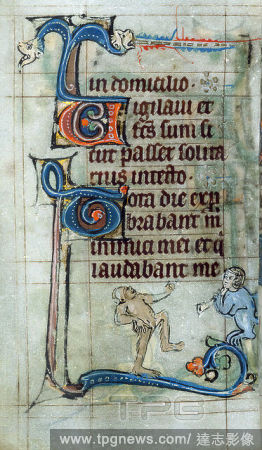 in domicilio.
Vigilaui et
fcs sum si
cut passer solita
rius intecto.
Tota die exp
brabant m
inimici mei et q
laudabant me
TPG
www.tpgnews.com/ 達志影像